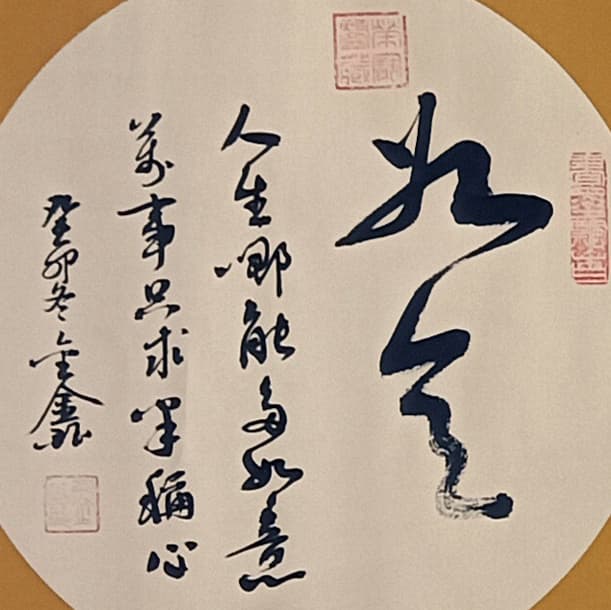 如意
人生哪能多如意
萬事只求半稱心
癸卯冬金鑫